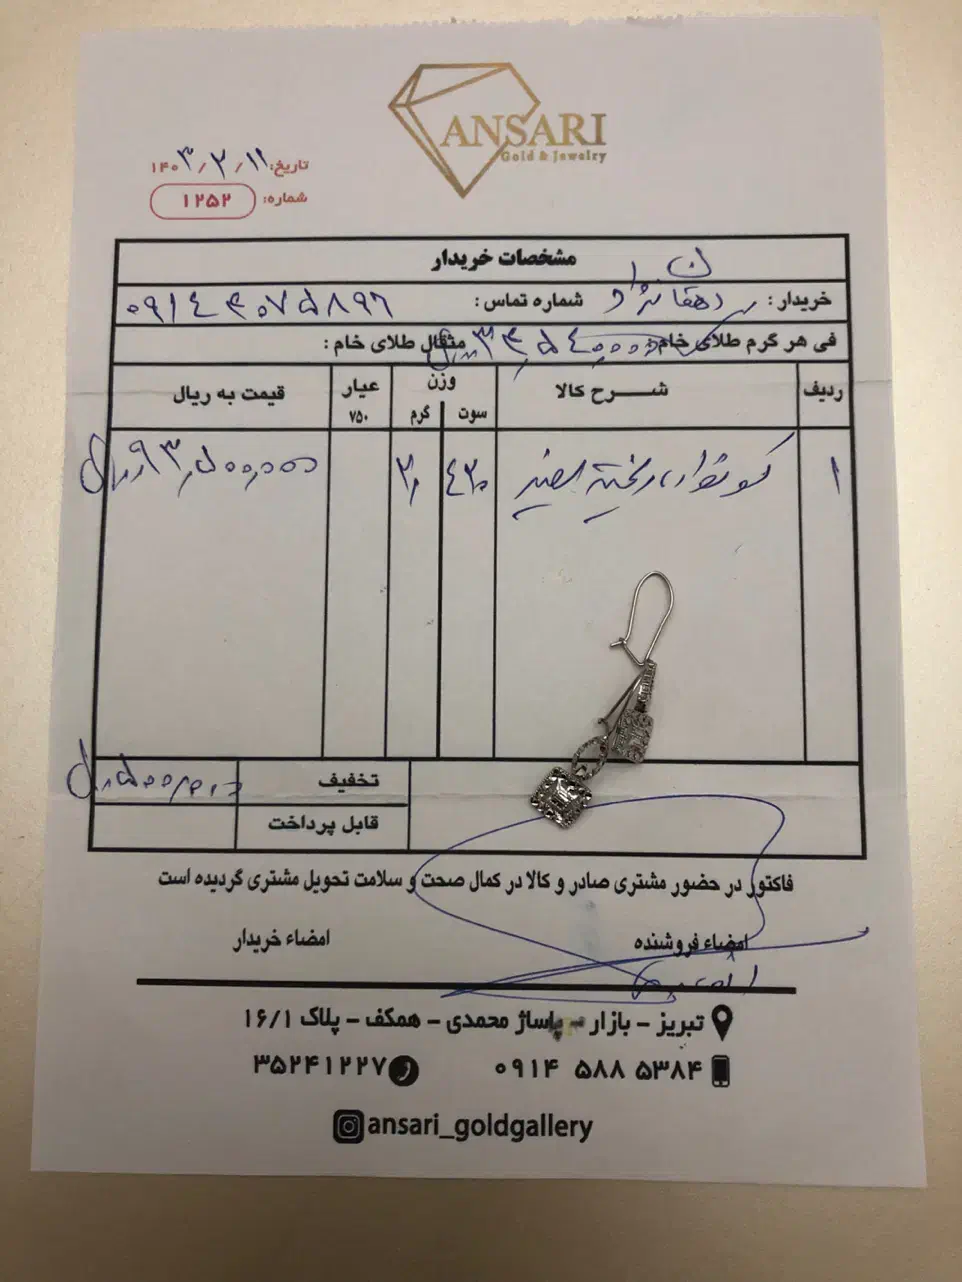 ANSARI
Gold & Jewelry
تاریخ: ۱۴۰۳/۲/۱۱
شماره: ۱۲۵۲
مشخصات خریدار
خریدار: دهقان نژاد شماره تماس: ۰۹۱۴۴۰۷۵۸۹۶
فی هر گرم طلای خام: مثقال طلای خام:
ردیف شرح کالا وزن عیار قیمت به ریال
سوت گرم ۷۵۰
۱ گوشواره ۴۳۰ ۲٫ ۹۳,۵۰۰,۰۰۰ ریال
تخفیف
قابل پرداخت
فاکتور در حضور مشتری صادر و کالا در کمال صحت و سلامت تحویل مشتری گردیده است
امضاء فروشنده امضاء خریدار
تبریز - بازار - پاساژ محمدی - همکف - پلاک ۱۶/۱
۰۹۱۴ ۵۸۸ ۵۳۸۴ ۳۵۲۴۱۲۲۷
ansari_goldgallery